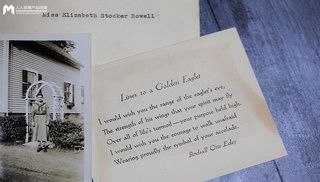 人人都是产品经理
Miss Elizabeth Stocker Howell
Lines to a Golden Eaglet
I would wish you the range of the eaglet's eye,
The strength of his wings that your spirit may fly
Over all of life's turmoil—your purpose held high,
I would wish you the courage to walk unafraid
Wearing proudly the symbol of your accolade.
Birdsall Otis Edey